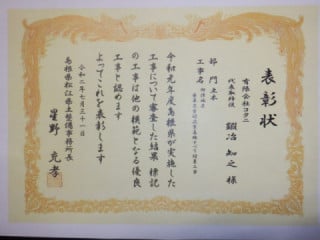 表彰状
有限会社ヨダニ
代表取締役 鍛冶 知之 様
部門 土木
工事名
令和元年度島根県が実施した
工事について審査した結果 標記
の工事は他の模範となる優良
工事と認めます
よってこれを表彰します
令和二年七月三十一日
島根県松江県土整備事務所長
星野 充孝